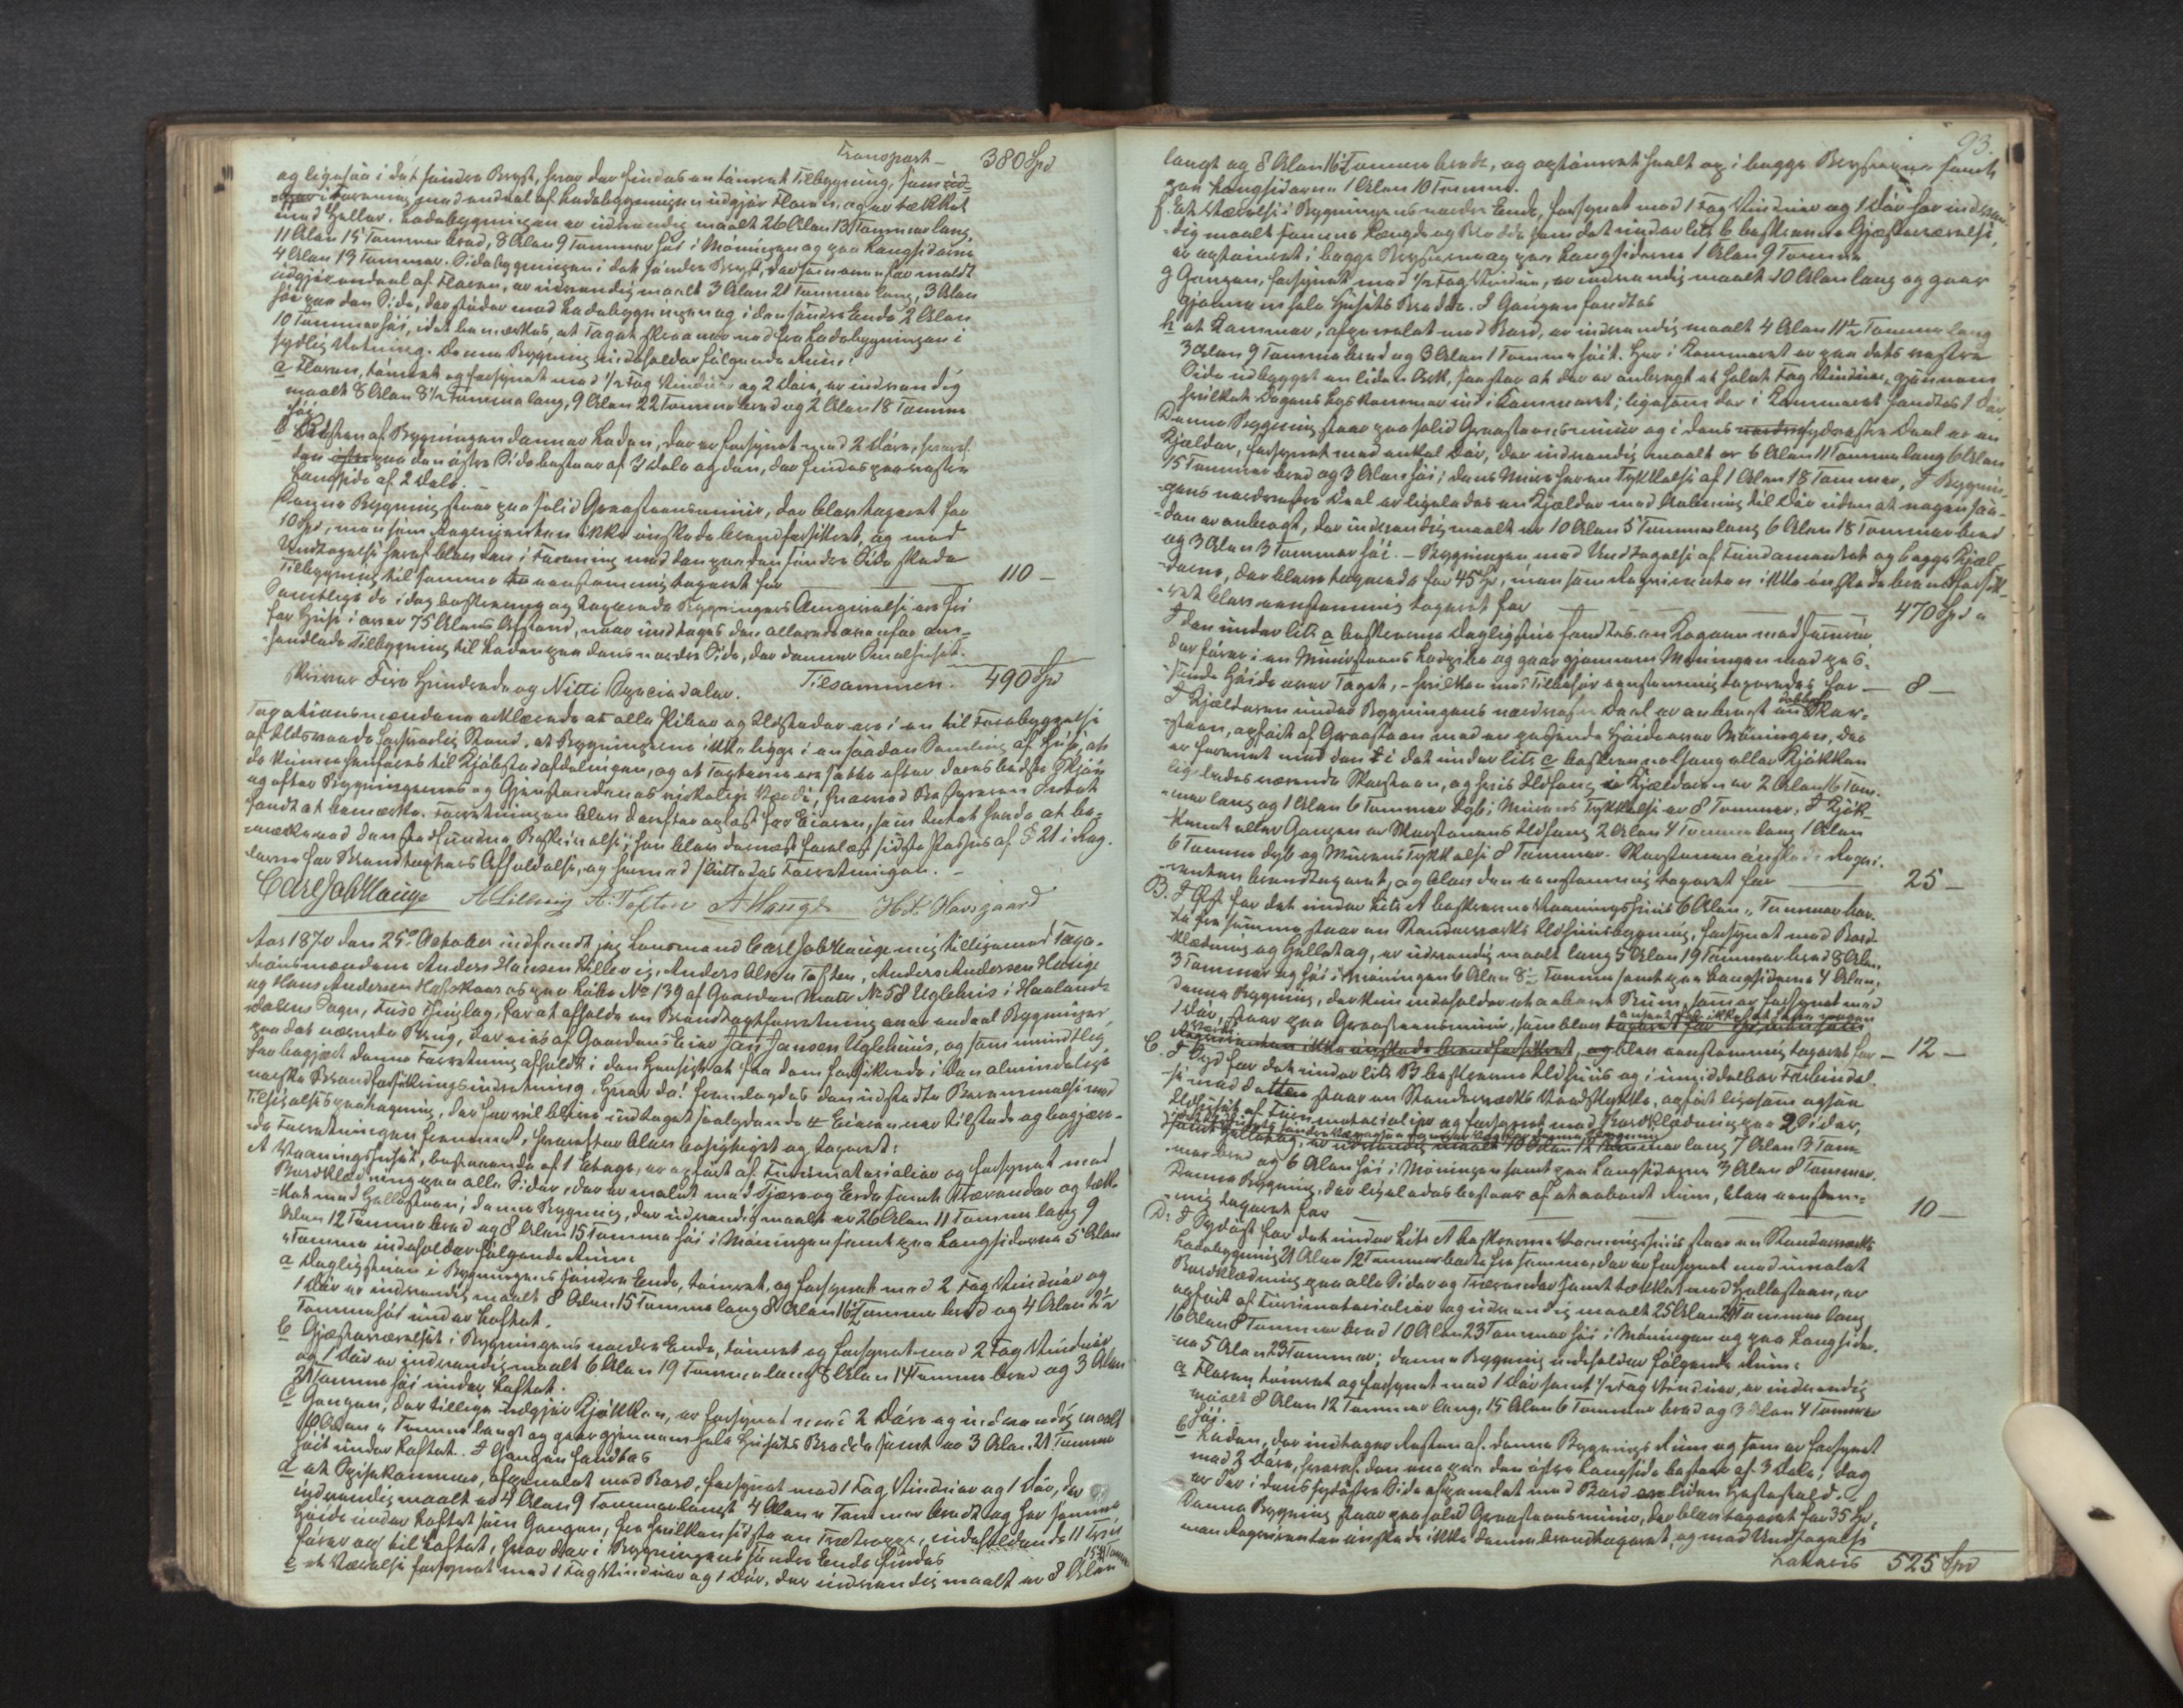 Transport – 380 Spd
og ligesaa i det søndre Bryst, hvor der findes en tømret Tilbygning, som ud-
gjør i Forening med endeel af Ladebygningen udgjør Floren, og er tækket
med Heller. Ladebygningen er udvendig maalt 26 Alen 13 Tommer lang,
11 Alen 15 Tommer bred, 8 Alen 9 Tommer høi i Møningen og paa Langsiderne
4 Alen 19 Tommer. Sidebygningen i det søndre Bryst, der som ovenfor meldt
udgjør endeel af Floren, er udvendig maalt 3 Alen 21 Tommer lang, 3 Alen
høi paa den Side, der støder mod Ladebygningen og i den søndre Ende 2 Alen
10 Tommer høi, idet bemærkes, at Taget skraaner ned fra Ladebygningen i
sydlig Retning. Denne Bygning indeholder følgende Rum:
a Floren, tømret og forsynet med 1/2 Fag Vinduer og 2 Døre, er indvendig
maalt 8 Alen 8 1/2 Tomme lang, 9 Alen 22 Tomme bred og 2 Alen 18 Tomme
høi.
b Resten af Bygningen danner Laden, der er forsynet med 2 Døre, hvoraf
den paa den østre Side bestaar af 3 Dele og den, der findes paa vestre
Langside af 2 Dele. –
Denne Bygning staar paa solid Graasteensmuur, der blev taxeret for
10 Spd, men som Reqvirenten ikke ønskede brandforsikret, og med
Undtagelse heraf blev den i Forening med den paa den søndre Side stødte
Tilbygning til samme eenstemmig taxeret for 110 –
Samtlige de idag beskrevne og taxerede Bygningers Omgivelse ere fri
for Huse i over 75 Alens Afstand, naar undtages den allerede ovenfor om-
handlede Tilbygning til Laden paa dens nordre Side, der danner Smalehuset.
Skriver Fire Hundrede og Nitti Speciedaler. Tilsammen. 490 Spd
Taxationsmændene erklærede at alle Piber og Ildsteder ere i en til Forebyggelse
af Ildsvaade forsvarlig Stand, at Bygningerne ikke ligge i en saadan Samling af Huse, at
de kunne henføres til Kjøbstadafdelingen, og at Taxterne ere satte efter deres bedste Skjøn
og efter Bygningernes og Gjenstandenes virkelige Værdi, hvorved Bestyreren Intet
fandt at bemærke. Forretningen blev derefter oplæst for Eieren, som Intet havde at be-
mærke ved den stedfundne Beskrivelse; han blev dernæst forelæst sidste Passus af § 21 i Reg-
lerne for Brandtaxters Afholdelse, og hermed sluttedes Forretningen. –
Carl Joh Hauge A Lillevig A. Toften A Hauge H A. Havsgaard
Aar 1870 den 25de October indfandt jeg Lensmand Carl Joh Hauge mig tilligemed Taxa-
tionsmændene Anders Hansen Lillevig, Anders Olsen Toften, Anders Andersen Hauge
og Hans Andersen Havskaar os paa Løbe No 139 af Gaarden Matr No 58 Uglehuus i Haalands-
dalens Sogn, Fuse Thinglag, for at afholde en Brandtaxtforretning over endeel Bygninger
paa det nævnte Brug, der eies af Gaardens Eier Jan Jansen Uglehuus, og som mundtlig
har begjært denne Forretning afholdt i den Hensigt at faa dem forsikrede i den almindelige
norske Brandforsikringsindretning. Hvorda! fremlagdes den udstedte Berammelse med
Tilsigelsespaategning, der her vil blive indtaget saalydende # Eieren var tilstede og begjær-
ede Forretningen fremmet, hvorefter blev besigtiget og taxeret:
A Vaaningshuset, bestaaende af 1 Etage, er opført af Furumaterialier og forsynet med
Bordklædning paa alle Sider, der er malet med Tjære og Erde samt Trærender og tæk-
ket med Hellesteen; denne Bygning, der udvendig maalt er 26 Alen 11 Tomme lang 9
Alen 12 Tomme bred og 8 Alen 15 Tomme høi i Møningen samt paa Langsiderne 5 Alen
" Tomme indeholder følgende Rum:
a Dagligstuen i Bygningens søndre Ende, tømret, og forsynet med 2 Fag Vinduer og
1 Dør er indvendig maalt 8 Alen 15 Tomme lang 8 Alen 16 1/2 Tomme bred og 4 Alen 2 1/2
Tomme høi under Loftet.
b Gjesteværelset i Bygningens nordre Ende, tømret og forsynet med 2 Fag Vinduer
og 1 Dør er indvendig maalt 6 Alen 19 Tomme lang 8 Alen 14 Tomme bred og 3 Alen
21 Tomme høi under Loftet.
c Gangen, der tillige udgjør Kjøkken, er forsynet med 2 Døre og indvendig maalt
10 Alen " Tomme langt og gaar gjennem hele Husets Bredde samt er 3 Alen 21 Tomme
høit under Loftet. I Gangen fandtes
d et Spisekammer, afpanelet med Bord, forsynet med 1 Fag Vinduer og 1 Dør, der
indvendig maalt er 4 Alen 9 Tomme langt 4 Alen " Tomme bredt og har samme
Høide under Loftet som Gangen, fra hvilken sidste en Trætrappe, indeholdende 11 Trin
fører op til Loftet, hvor der i Bygningens søndre Ende findes
e et Værelse forsynet med 1 Fag Vinduer og 1 Dør, der indvendig maalt er 8 Alen 15 1/2 Tomme
93.
langt og 8 Alen 16 1/2 Tomme bredt, og optømret heelt op i begge Brysterne samt
paa Langsiderne 1 Alen 10 Tomme.
f Et Værelse i Bygningens nordre Ende, forsynet med 1 Fag Vinduer og 1 Dør har indven-
dig maalt samme Længde og Bredde som det under litr b beskrevne Gjæsteværelse,
er optømret i begge Brysterne og paa Langsiderne 1 Alen 9 Tomme
g Gangen, forsynet med 1/2 Fag Vinduer, er indvendig maalt 10 Alen lang og gaar
gjennem hele Husets Bredde. I Gangen fandtes
h et Kammer, afpanelet med Bord, er indvendig maalt 4 Alen 11 1/2 Tomme lang
3 Alen 9 Tomme bred og 3 Alen 1 Tomme høit. Her i Kammeret er paa dets vestre
Side udbygget en liden Ark, hvorfor at der er anbragt et halvt Fag Vinduer, gjennem
hvilket Dagens Lys kommer ind i Kammeret; ligesom der i Kammeret fandtes 1 Dør
Denne Bygning staar paa solid Graasteensmuur og i dens nordre sydvestre Deel er en
Kjælder, forsynet med enkel Dør, der indvendig maalt er 6 Alen 11 Tomme lang 6 Alen
15 Tomme bred og 3 Alen høi; dens Muur har en Tykkelse af 1 Alen 18 Tommer. I Bygnin-
gens nordvestre Deel er ligeledes en Kjælder med Aabning til Dør uden at nogen saa-
dan er anbragt, der indvendig maalt er 10 Alen 5 Tomme lang 6 Alen 18 Tomme bred
og 3 Alen 3 Tommer høi. – Bygningen med Undtagelse af Fundamentet og begge Kjæl-
derne, der bleve taxerede for 45 Spd, men som Reqvirenten ikke ønskede brandforsik-
ret blev eenstemmig taxeret for 470 Spd "
I den under litr a beskrevne Dagligstue fandtes en Kogeovn med Tromme
der fører i en Muursteens Lodpibe og gaar gjennem Møningen med pas-
sende Høide over Taget, – hvilken med Tilbehør eenstemmig taxeredes for – 8 –
I Kjælderen under Bygningens nordvestre Deel er anbragt en dobbelt Skor-
steen, opført af Graasteen med en passende Høide over Møningen, der
er forenet med den i det under litr c beskrevne Gang eller Kjøkken
lig-ledes værende Skorsteen, og hvis Ildfang i Kjælderen er 2 Alen 16 Tom-
mer lang og 1 Alen 6 Tommer dyb; Murens Tykkelse er 8 Tommer. I Kjøk-
kenet eller Gangen er Skorstenens Ildfang 2 Alen 4 Tomme lang 1 Alen
6 Tomme dyb og Murens Tykkelse 8 Tommer. Skorstenen ønskede Reqvi-
renten brandtaxeret, og blev den eenstemmig taxeret for 25 –
B. I Øst for det under Litr A beskrevne Vaaningshuus 6 Alen " Tommer bor-
te fra samme staar en Standværks Ildhuusbygning, forsynet med Bord-
klædning og Helletag, er udvendig maalt lang 5 Alen 19 Tommer bred 8 Alen
3 Tommer og høi i Møningen 6 Alen 8 1/2 Tomme samt paa Langsiderne 4 Alen,
denne Bygning, der kun indeholder et aabent Rum, som er forsynet med
1 Dør, staar paa Graasteensmuur, som blev anseet for ikke at have nogen taxeret for Spd men som
Værdi Reqvirenten ikke ønskede brandforsikret, og blev eenstemmig taxeret for – 12 –
C. I Syd for det under litr B beskrevne Ildhuus og i umiddelbar Forbindel-
se med dette staar en Standværks Vedskykke, opført ligesom ogsaa
Ildhuset af Furumaterialier og forsynet med Bordklædning paa 2 Sider,
samt Helletag, er udvendig maalt 10 Alen 12 Tommer lang 7 Alen 3 Tom-
mer bred og 6 Alen høi i Møningen samt paa Langsiderne 3 Alen 8 Tommer.
Denne Bygning, der ligeledes bestaar af et aabent Rum, blev eenstem-
mig taxeret for 10 –
D: I Sydøst for det under Litr A beskrevne Vaaningshuus staar en Standværks
Ladebygning 21 Alen 12 Tommer borte fra samme, der er forsynet med umalet
Bordklædning paa alle Sider og Trærender samt tækket med Hellesteen, er
opført af Furumaterialier og udvendig maalt 25 Alen 21 Tommer lang,
16 Alen 8 Tommer bred 10 Alen 23 Tommer høi i Møningen og paa Langsider-
ne 5 Alen 23 Tommer; denne Bygning indeholder følgende Rum:
a Floren, tømret og forsynet med 1 Dør samt 1/2 Fag Vinduer, er indvendig
maalt 8 Alen 12 Tommer lang, 15 Alen 6 Tommer bred og 3 Alen 4 Tommer
høi.
b Laden, der indtager Resten af denne Bygnings Rum og som er forsynet
med 2 Døre, hvoraf den ene paa den østre Langside bestaar af 3 Dele; dog
er der i dens sydøstre Side afpanelet med Bord en liden Hestestald.
Denne Bygning staar paa solid Graasteensmuur, der blev taxeret for 35 Spd,
men Reqvirenten ønskede ikke denne brandtaxeret, og med Undtagelse
Lateris 525 Spd